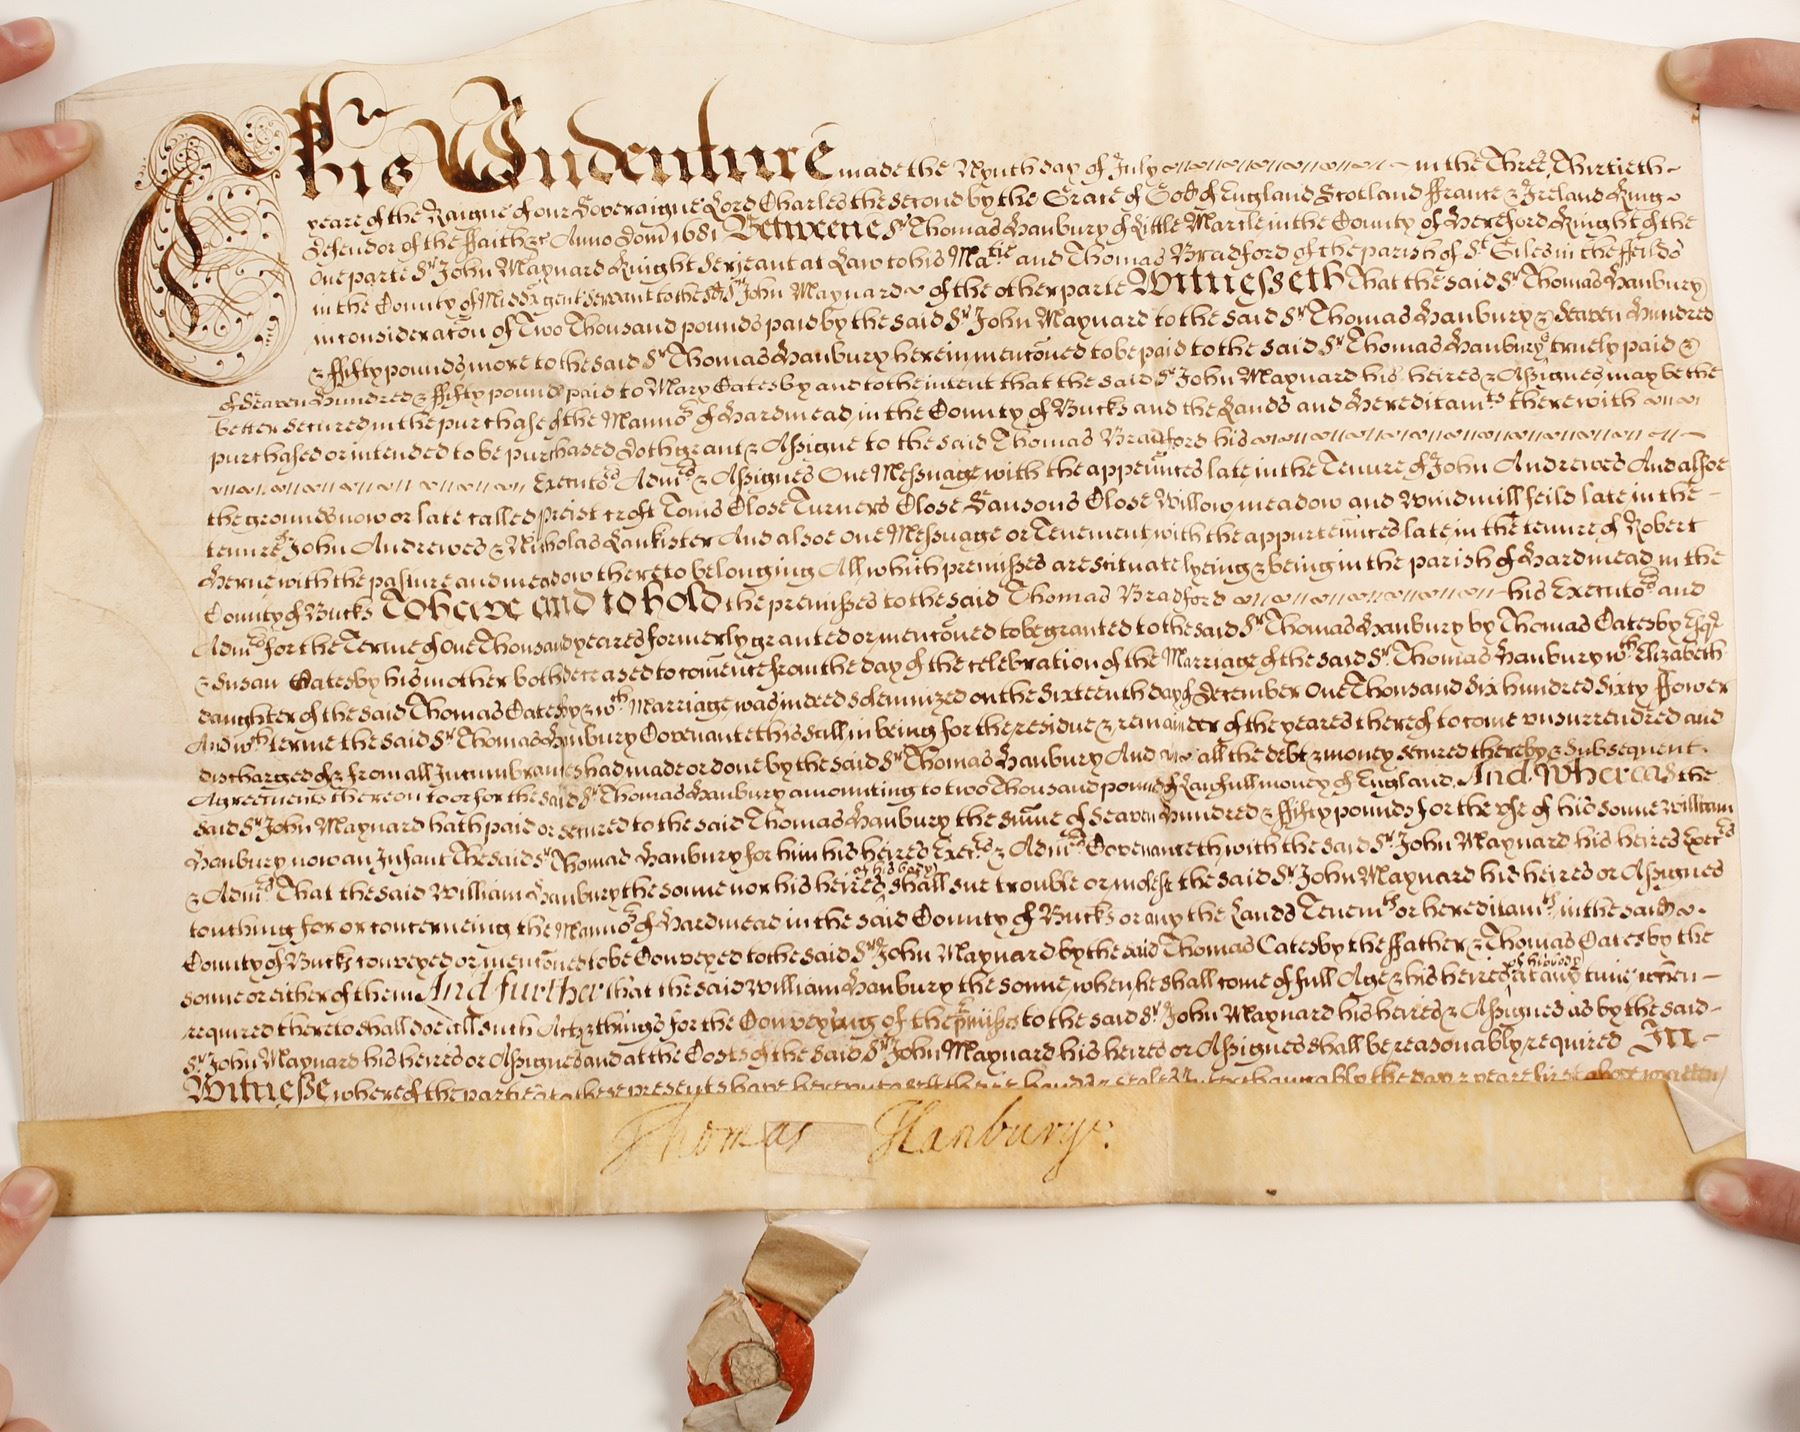 This Indenture made the Nynth day of July in the Three & Thirtieth
yeare of the Raigne of our Soveraigne Lord Charles the second by the Grace of God of England Scotland ffrance & Ireland King
defendor of the ffaith &c Anno Dom 1681 Betweene Sr Thomas Hanbury of Little Martle in the County of Hereford Knight of the
One parte Sr John Maynard Knight Serjeant at Law to his Matie and Thomas Bradford of the parish of St Giles in the ffeilds
in the County of Middx gent servant to the sd Sr John Maynard of the other parte Witnesseth That the said Sr Thomas Hanbury
in consideracon of Two Thousand pounds paid by the said Sr John Maynard to the said Sr Thomas Hanbury & Seaven Hundred
& ffifty pounds more to the said Sr Thomas Hanbury herein menconed to be paid to the said Sr Thomas Hanbury truely paid &
of Seaven Hundred & ffifty pounds paid to Mary Catesby and to the intent that the said Sr John Maynard his heires & Assignes may be the
better secured in the purchase of the Mannor of Hardmead in the County of Bucks and the Lands and Hereditamts therewith
purchased or intended to be purchased doth grant & Assigne to the said Thomas Bradford his
Executors Admrs & Assignes One Messuage with the appurtennces late in the Tenure of John Andrewes And alsoe
the grounds now or late called preist croft Toms Close Turners Close Sansons Close Willow meadow and Windmill feild late in the
tenure of John Andrewes & Nicholas Lankister And alsoe one Messuage or Tenement with the appurtennces late in the tenure of Robert
Herne with the pasture and meadow thereto belonging All which premisses are situate lyeing & being in the parish of Hardmead in the
County of Bucks To have and to hold the premisses to the said Thomas Bradford his Executors and
Admrs for the Terme of One Thousand yeares formerly granted or menconed to be granted to the said Sr Thomas Hanbury by Thomas Catesby Esqr
& Susan Catesby his mother both deceased to comence from the day of the celebration of the Marriage of the said Sr Thomas Hanbury wth Elizabeth
daughter of the said Thomas Catesby & wch Marriage was indeed solemnized on the sixteenth day of december One Thousand six hundred sixty ffower
And wch terme the said Sr Thomas Hanbury Covenanteth is still in being for the residue & remainder of the yeares thereof to come unsurrendred and
discharged of & from all Incumbrances had made or done by the said Sr Thomas Hanbury And all the debt & money secured thereby & subsequent
Agreements thereon to or for the said Sr Thomas Hanbury amounting to two Thousand pounds of Lawfull money of England And Whereas the
said Sr John Maynard hath paid or secured to the said Thomas Hanbury the sume of Seaven Hundred & ffifty pounds for the use of his sonne William
Hanbury now an Infant The said Sr Thomas Hanbury for him his heires Exectrs & Admrs Covenanteth with the said Sr John Maynard his heires Exectrs
& Admrs That the said William Hanbury the sonne nor his heires of his body shall sue trouble or molest the said Sr John Maynard his heires or Assignes
touching for or concerneing the Mannor of Hardmead in the said County of Bucks or any the Lands Tenemts or hereditamts in the said
County of Bucks conveyed or menconed to be Conveyed to the said Sr John Maynard by the said Thomas Catesby the ffather & Thomas Catesby the
sonne or either of them And further that the said William Hanbury the sonne when he shall come of full Age & his heires of his body at any time when
required thereto shall doe all such Acts & things for the Conveying of the prmisses to the said Sr John Maynard his heires & Assignes as by the said
Sr John Maynard his heires or Assignes and at the Costs of the said Sr John Maynard his heires or Assignes shall be reasonably required In
Witnesse whereof the parties to these presents have hereunto sett their hands & seales Interchangably the day & yeare first above written
Thomas Hanburye.